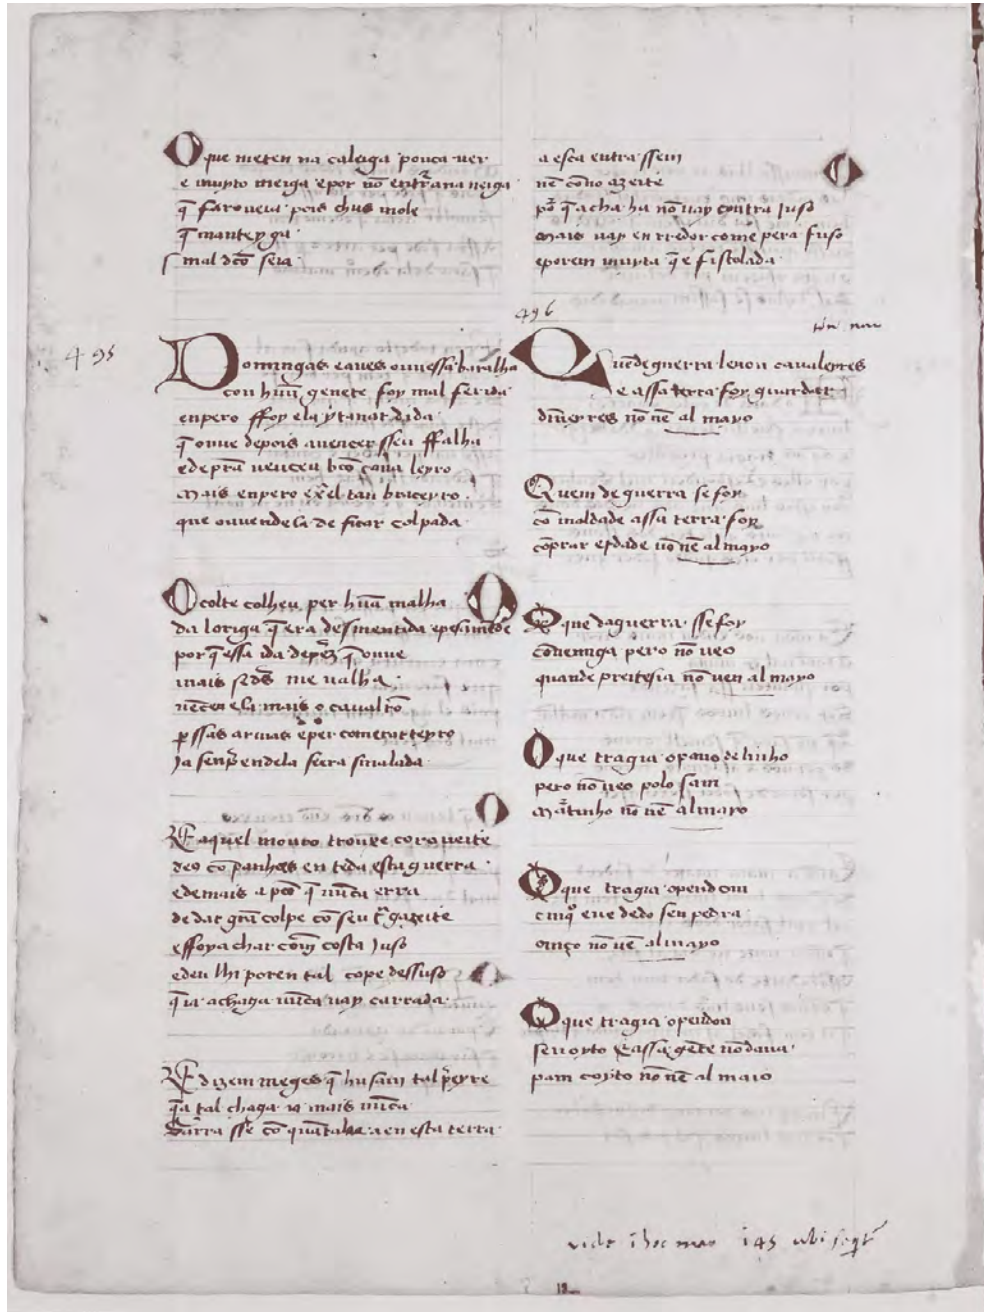 O que meten na taleiga pouca ver
e muyto meiga epor nō entr̄ana neiga
q̄ faroueia pois chus mole
q̄ manteyga
mal dc̄o seia
495
Domingas eanes ouuessa baralha
con hūu genete foy mal ferida
enpero ffoy ela y tan ardida
q̄ ouue depois auencer sseu ffalha
edeprā uenceu bōo caualeyro
mais enpero ex̄el tan braceyro
que ouuendela de ficar colpada
O colbe colheu per hūa malha
da loriga q̄ era desmentida epesamēde
por q̄ essa ida deprez q̄ ouue
mais se ds̄ me ualha
uēceu ela mais o caualr̄o
per ssas armas e per
ja senp̄ endela seera sinalada
E aquel mouro trouxe
deos cōpanhoēs en toda esta guerra
edemais a pc̄o q̄ nūca erra
de dar grā colpe cō seu
effoya char comō costa juso
edeu lhi poren tal cope dessuso
q̄ ia achaga nūca uay carrada
E dizem meges q̄ husam tal p̄eyre
q̄a tal chaga ia mais nūca
sarra sse cō quātalaa a en esta terra
a esca entra ssem
nē cōno azeite
por q̄ a cha ha nō uay contra juso
mais uay en rredor come pera fuso
eporem muyta q̄ e fistolada
496
Quē deguerra leuou caualeyros
e assa terra foy guardar
dīneyros nō uē al mayo
Quem de guerra se foy
cō maldade assa terra foy
cōprar erdade nō uē al mayo
O que daguerra sse foy
cōnemiga pero nō ueo
quande preitesia nō uen al mayo
O que tragia o pano de linho
pero nō ueo polo sam
Mārtinho nō uē al mayo
O que tragia o pendom
cinqo en e dedo sen pedra
nō uē al mayo
O que tragia o pendon
sen oyto e assa gente nō daua
pam coyto nō uē al maio